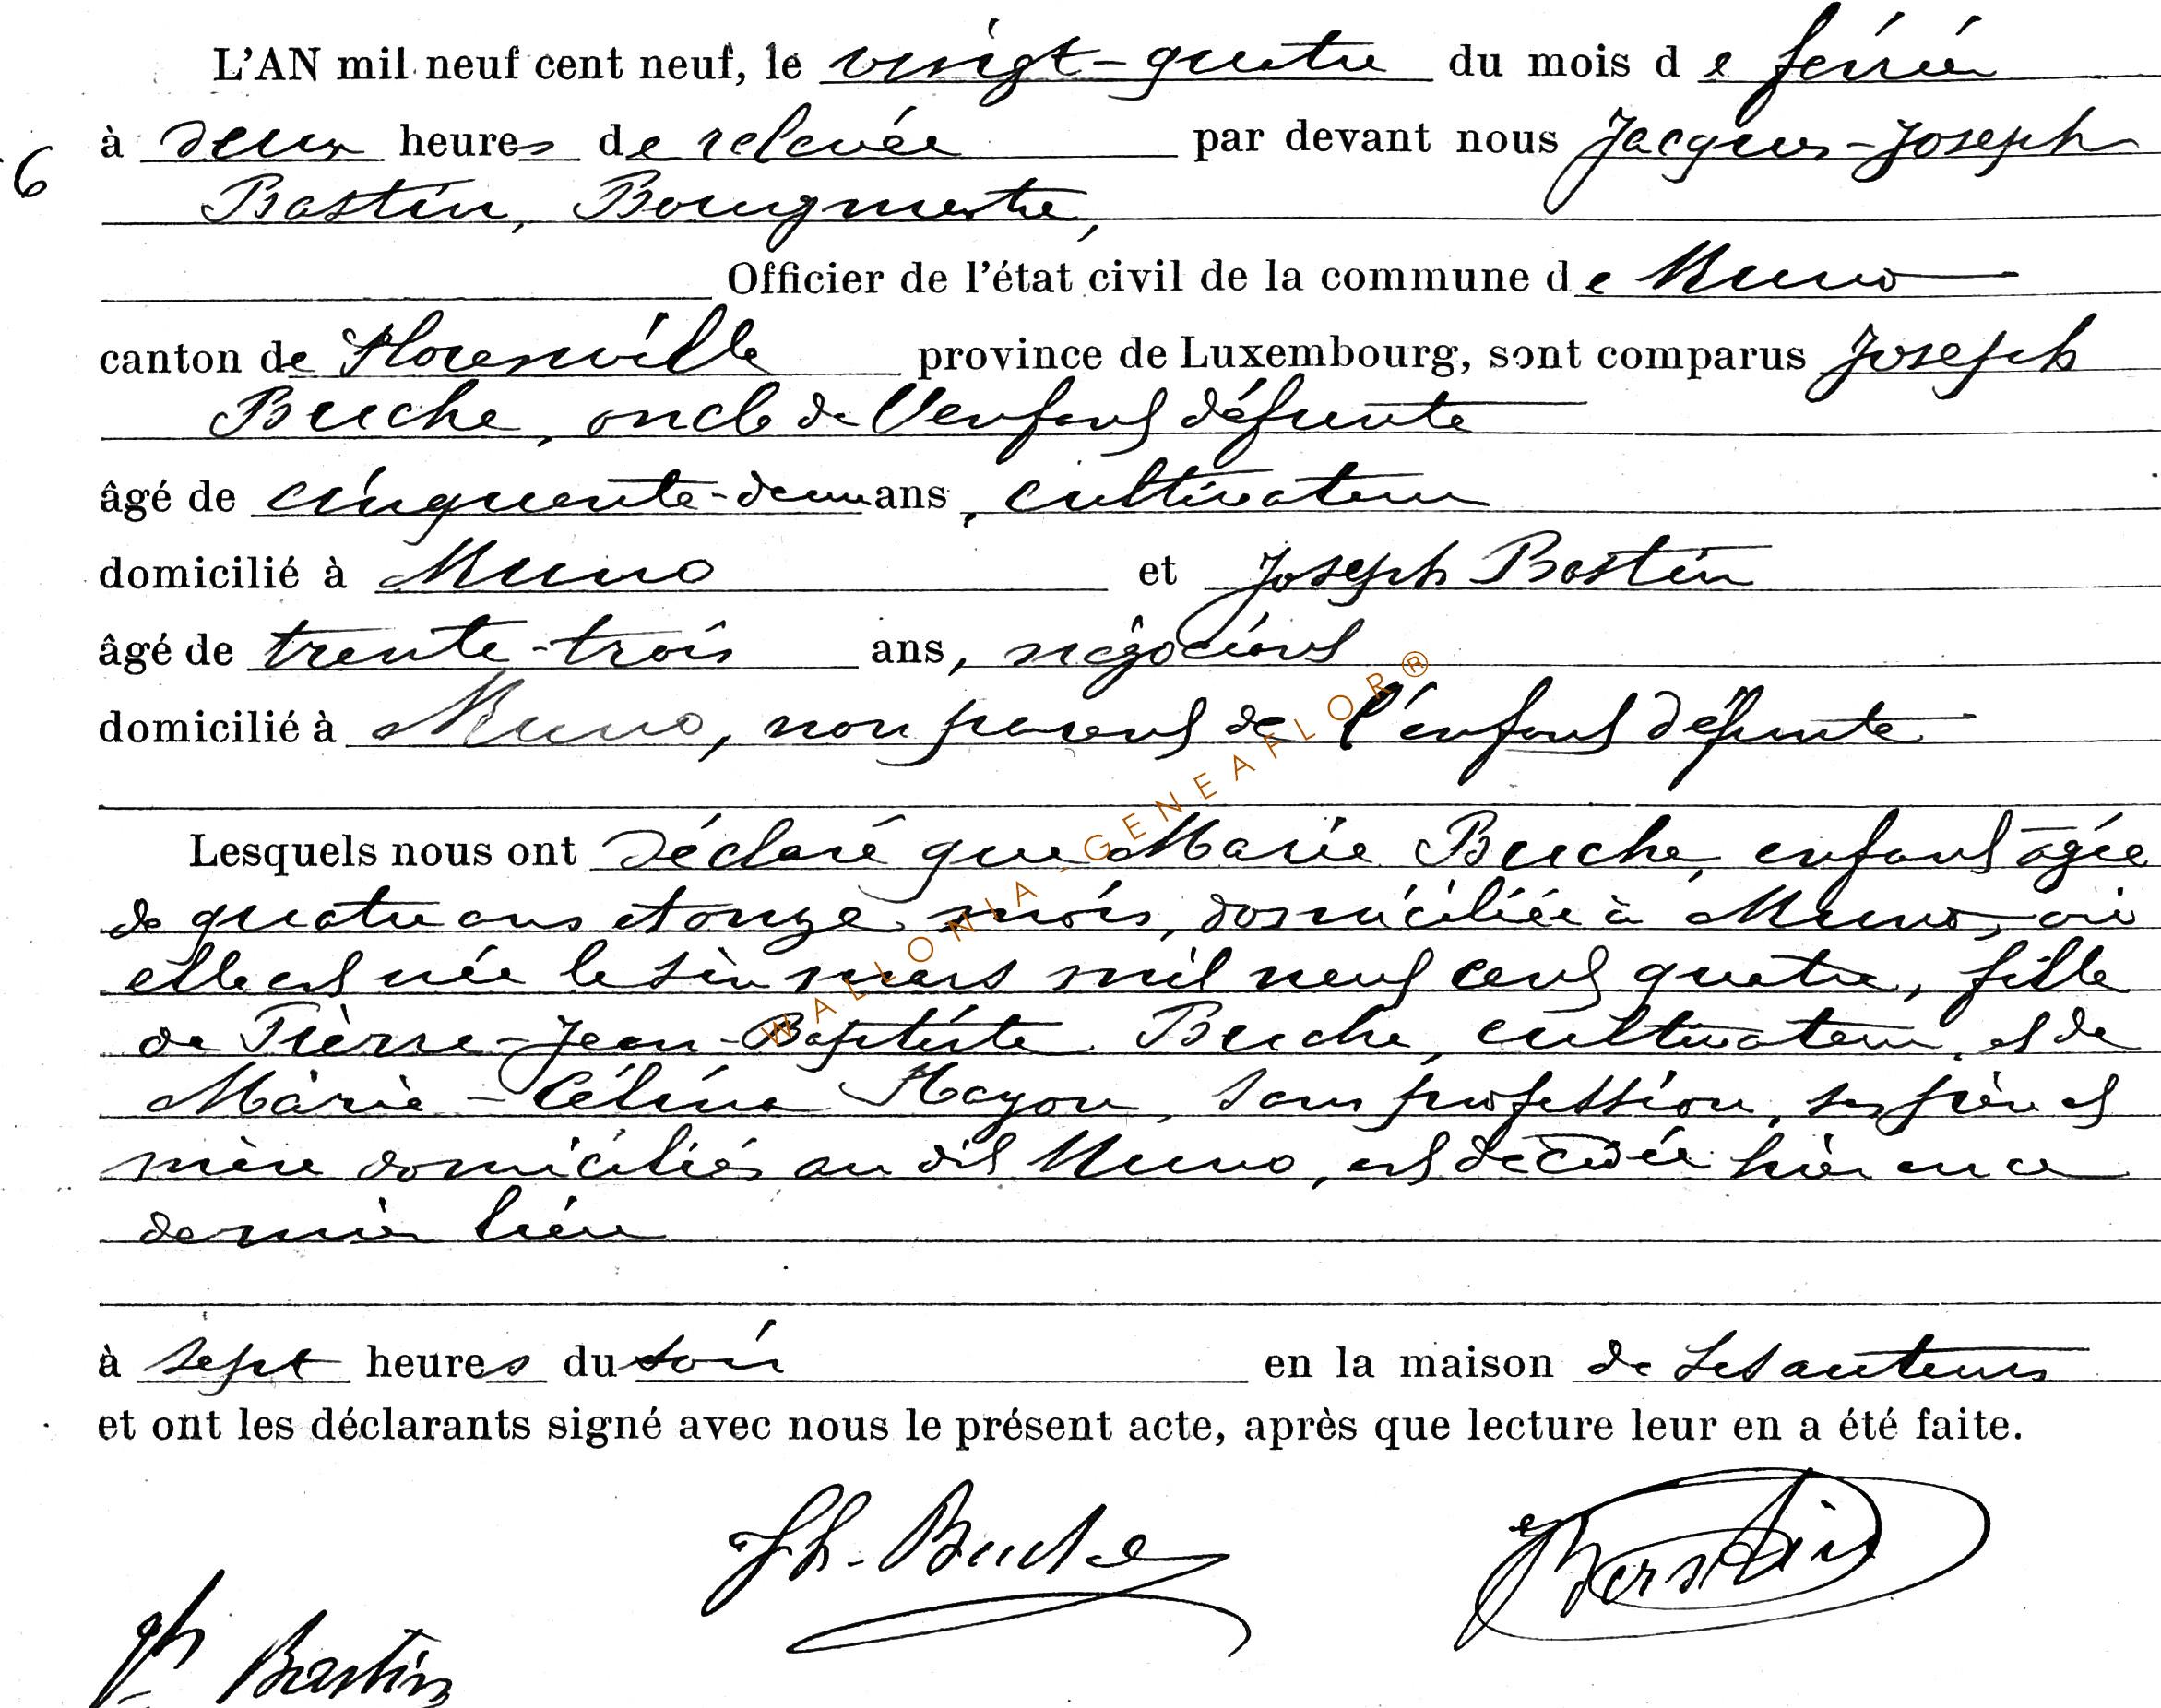 L'AN mil neuf cent neuf, le vingt-quatre du mois de février
à deux heures de relevée par devant nous Jacques-Joseph
6
Bastin, Bourgmestre,
Officier de l'état civil de la commune de Muno
canton de Florenville province de Luxembourg, sont comparus Joseph
Buche, oncle de l'enfant défunte
âgé de cinquante-deux ans, cultivateur
domicilié à Muno et Joseph Bastin
âgé de trente-trois ans, négociant
domicilié à Muno, non parent de l'enfant défunte
Lesquels nous ont déclaré que Marie Buche, enfant âgée
de quatre ans et onze mois, domiciliée à Muno, où
elle est née le six mars mil neuf cent quatre, fille
de Pierre-Jean-Baptiste Buche, cultivateur, et de
Marie-Célina Hayon, sans profession, ses père et
mère domiciliés au dit Muno, est décédée hier en ce
dernier lieu
à sept heures du soir en la maison de ses auteurs
et ont les déclarants signé avec nous le présent acte, après que lecture leur en a été faite.
Jh. Buche
JBastin
Jh Bastin
WALLONIA-GENEAFLOR®